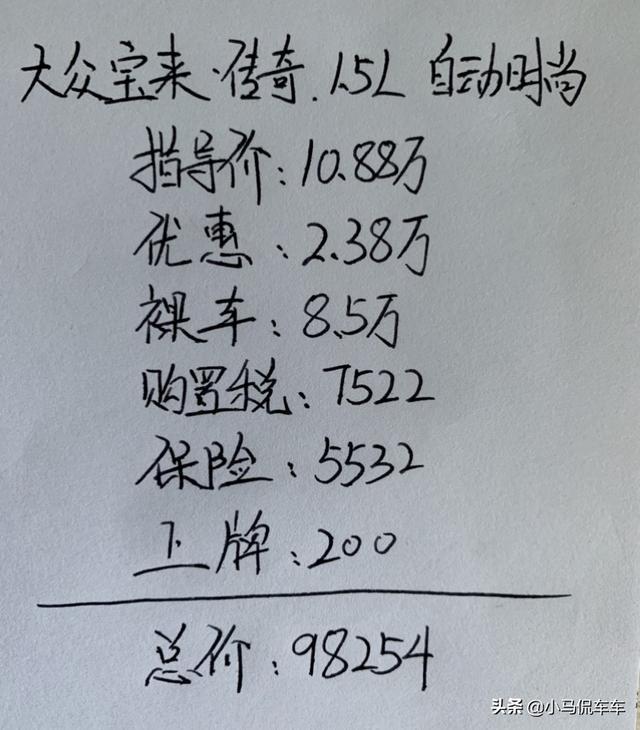 大众宝来·传奇.1.5L 自动时尚
指导价:10.88万
优惠:2.38万
裸车:8.5万
购置税:7522
保险:5532
上牌:200
总价:98254
头条 @小马侃车车